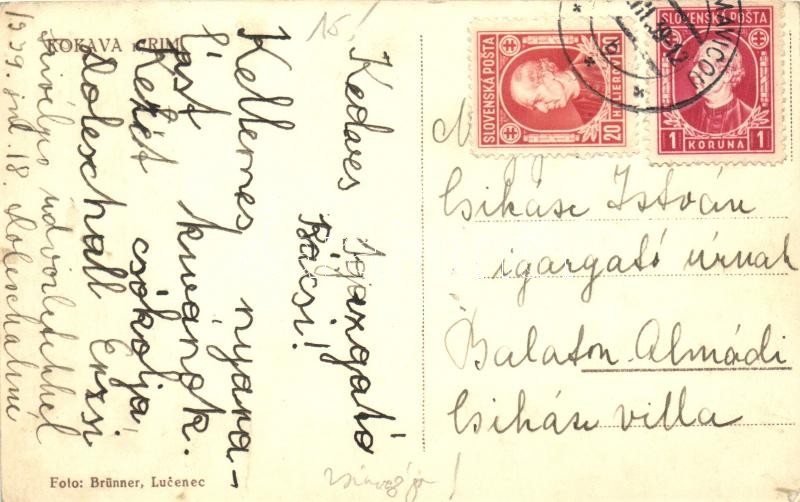 KOKAVA CRIM
15!
Kedves Igazgató
Bácsi!
Kellemes nyara-
lást kívánok.
Kezét csókolja,
Doleschall Erzsi
Szívélyes üdvözlettel
1939. júl. 18. Doleschallné
Foto: Brünner, Lučenec
SLOVENSKÁ POŠTA
20 HALIEROV 20
SLOVENSKÁ POŠTA
1 KORUNA 1
Csikász István
igazgató úrnak
Balaton Almádi
Csikász villa